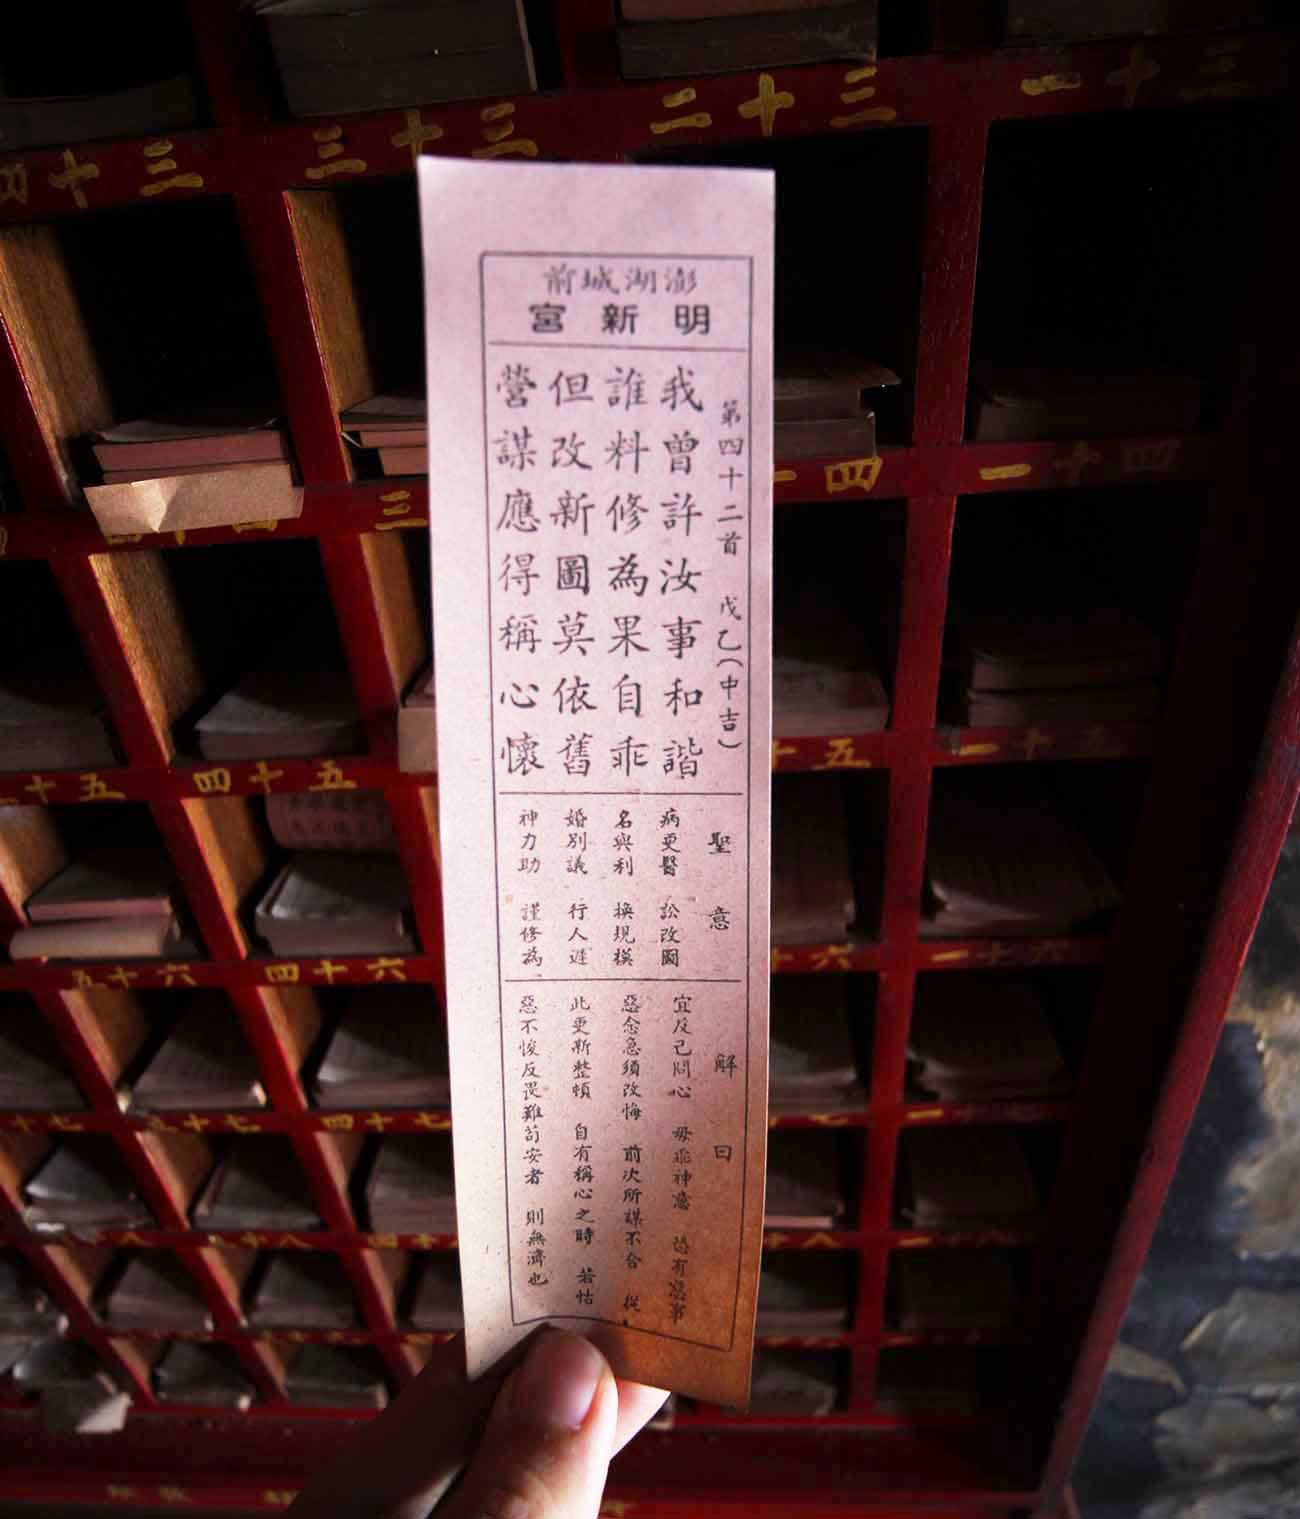 澎湖城前
明新宮
第四十二首 戊乙(中吉)
我曾許汝事和諧
誰料修為果自乖
但改新圖莫依舊
營謀應得稱心懷
聖意
病更醫 訟改圖
名與利 換規模
婚別議 行人遲
神力助 謹修為
解曰
宜反己問心 毋乖神意 恐有惡事
惡念急須改悔 前次所謀不合 從
此更新整頓 自有稱心之時 若怙
惡不悛反畏難苟安者 則無濟也
四十三
三十三
二十三
一十三
三
一四
一十四
十五
四十五
十五
一十五
五十六
四十六
十六
一十六
十七
五十七
四十七
七
一十七